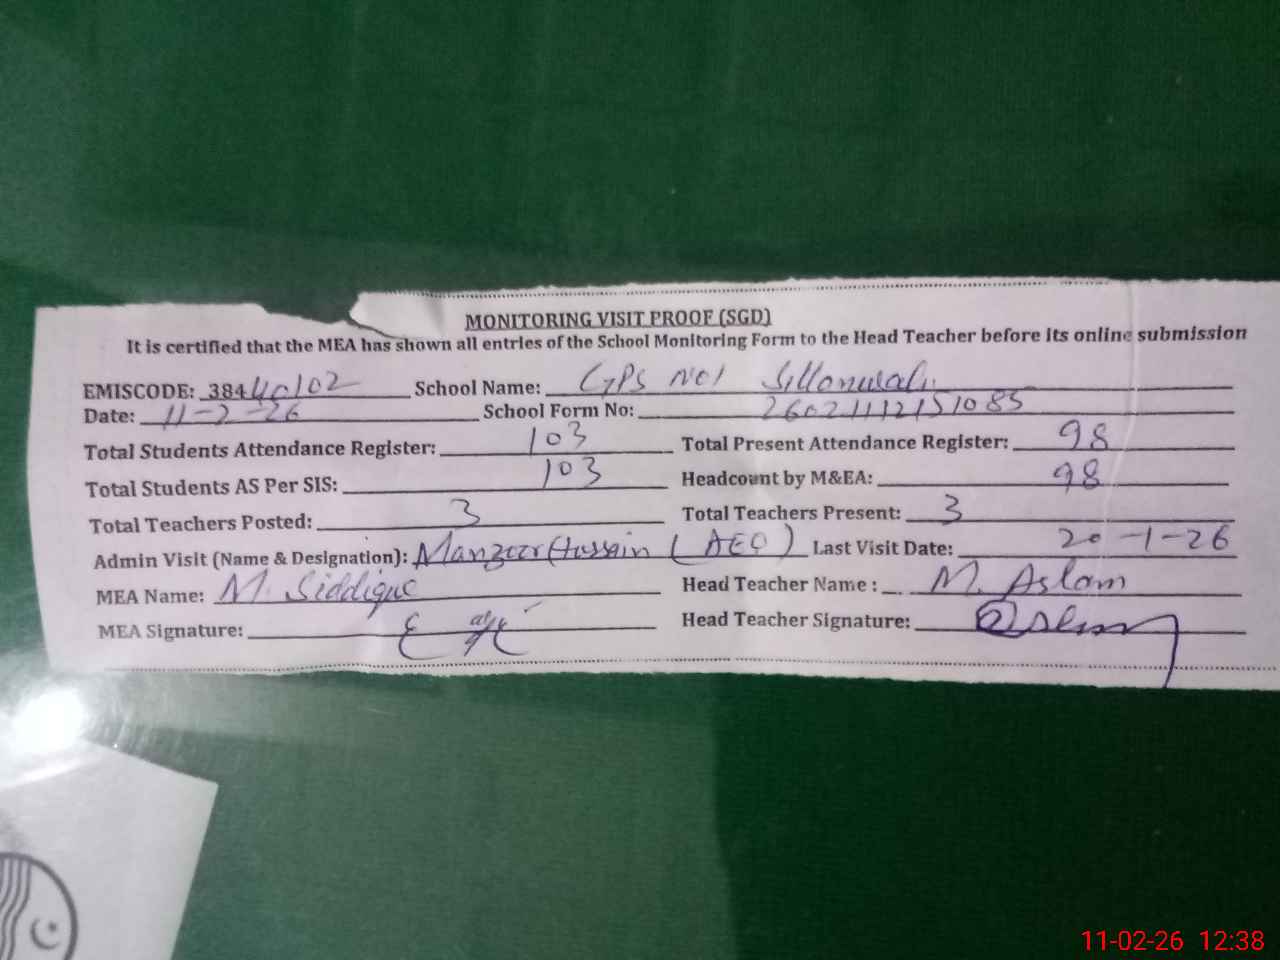 MONITORING VISIT PROOF (SGD)
It is certified that the MEA has shown all entries of the School Monitoring Form to the Head Teacher before its online submission
EMISCODE: 38440102 School Name: GPS NO1 Sillanwali
Date: 11-2-26 School Form No: 26021112151085
Total Students Attendance Register: 103 Total Present Attendance Register: 98
Total Students AS Per SIS: 103 Headcount by M&EA: 98
Total Teachers Posted: 3 Total Teachers Present: 3
Admin Visit (Name & Designation): Manzoor Hussain (AEO) Last Visit Date: 20-1-26
MEA Name: M. Siddique Head Teacher Name: M. Aslam
MEA Signature: Head Teacher Signature:
11-02-26 12:38